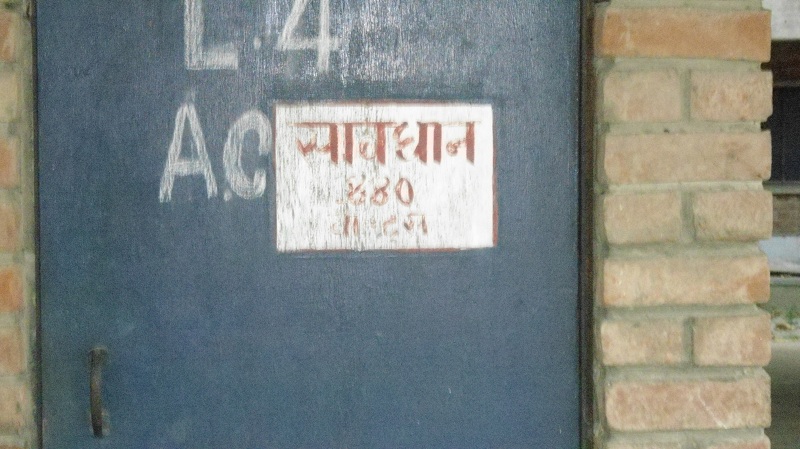 L.4
A.C
सावधान
४४०
वोल्टस